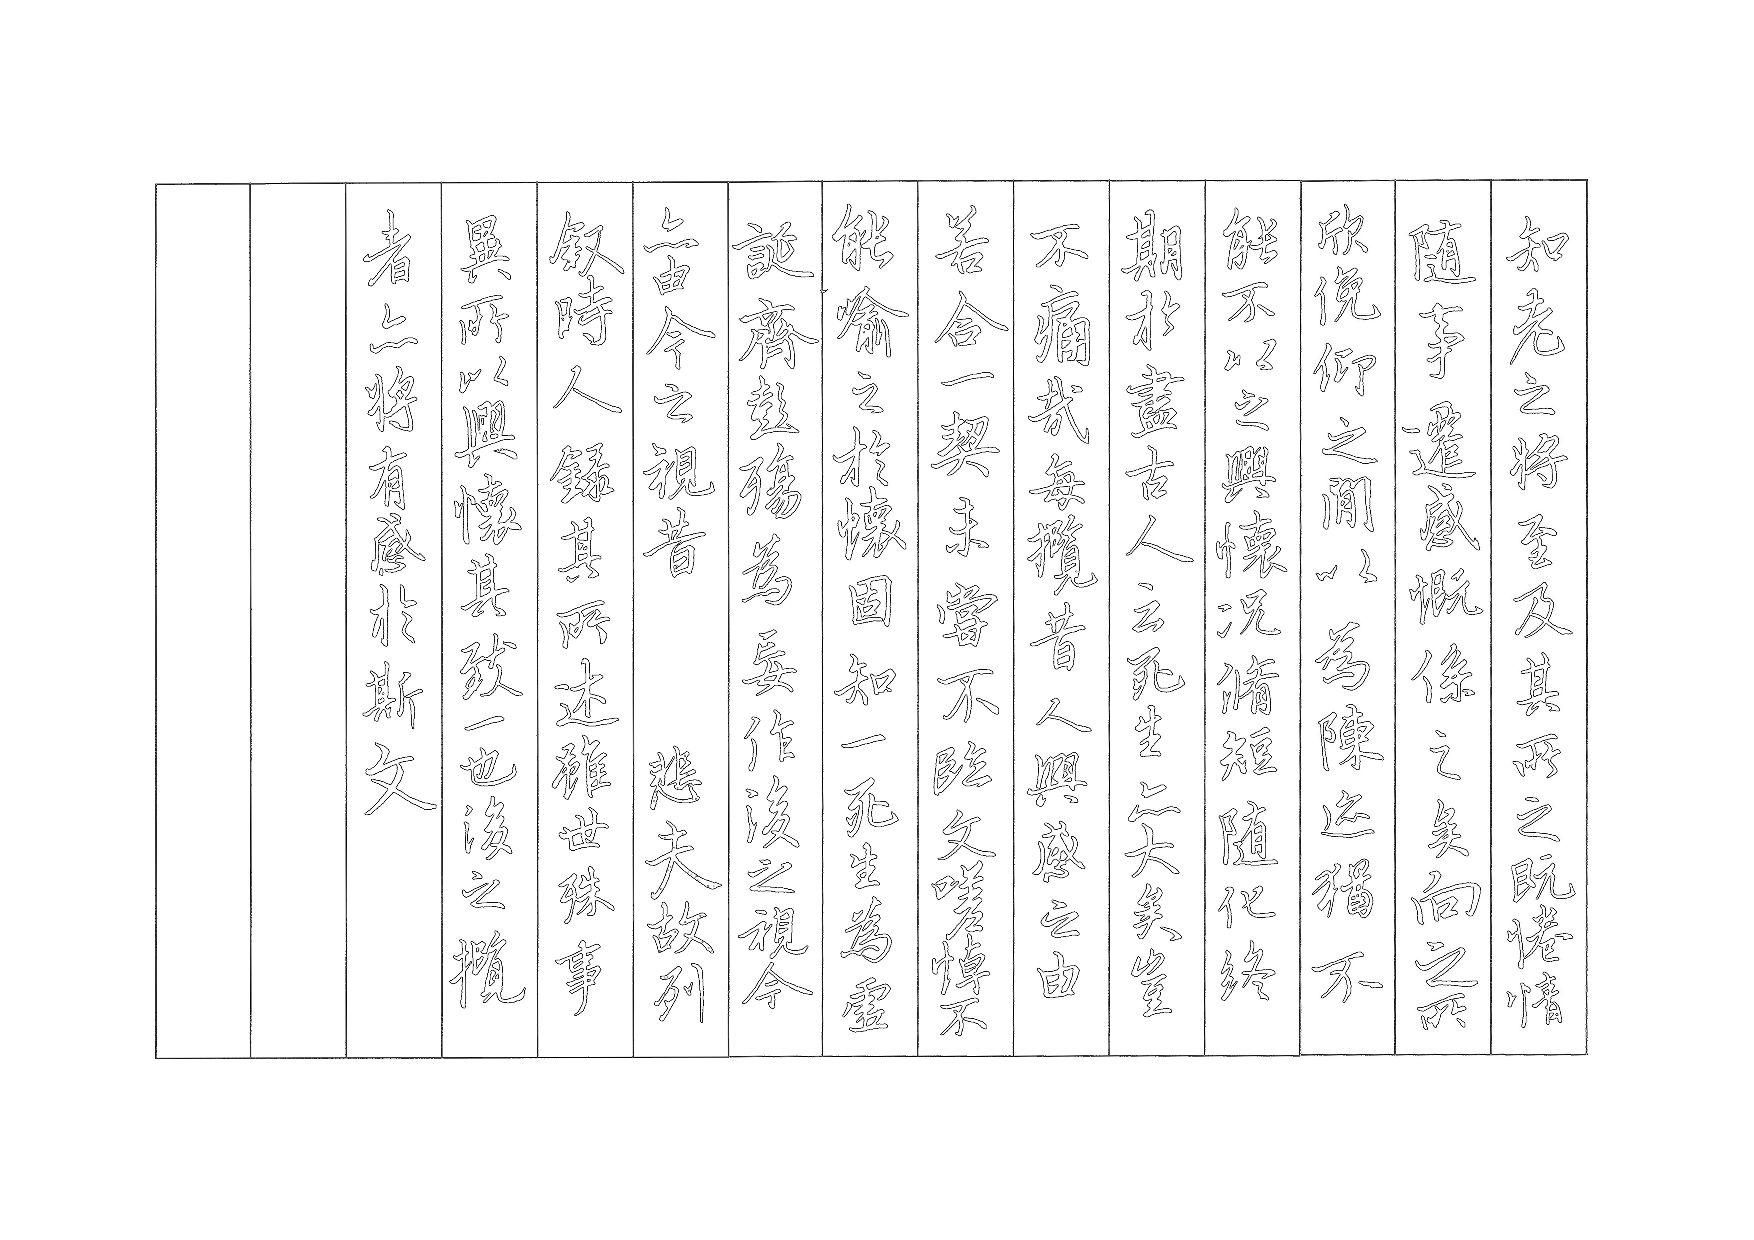 知老之將至及其所之既惓情
随事遷感慨係之矣向之所
欣俛仰之閒以為陳迹猶不
能不以之興懷況脩短随化終
期於盡古人云死生亦大矣豈
不痛哉每攬昔人興感之由
若合一契未嘗不臨文嗟悼不
能喻之於懷固知一死生為虛
誕齊彭殤為妄作後之視今
亦由今之視昔 悲夫故列
叙時人録其所述雖世殊事
異所以興懷其致一也後之攬
者亦將有感於斯文